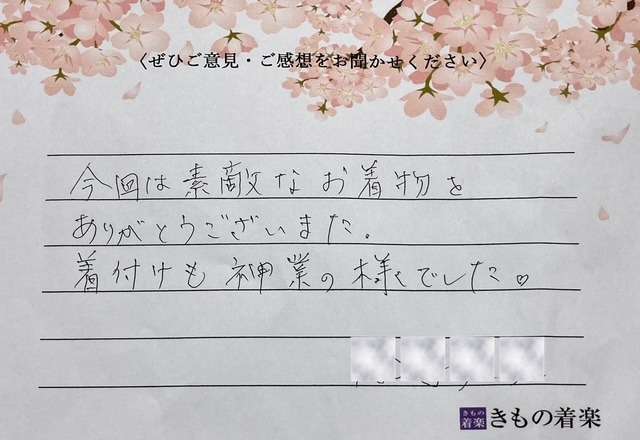 〈ぜひご意見・ご感想をお聞かせください〉
今回は素敵なお着物を
ありがとうございました。
着付けも神業の様でした♡
きもの
着楽
きもの着楽